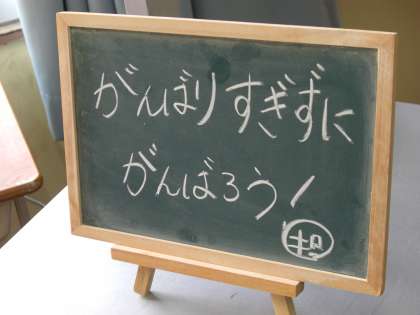 がんばりすぎずに
がんばろう!